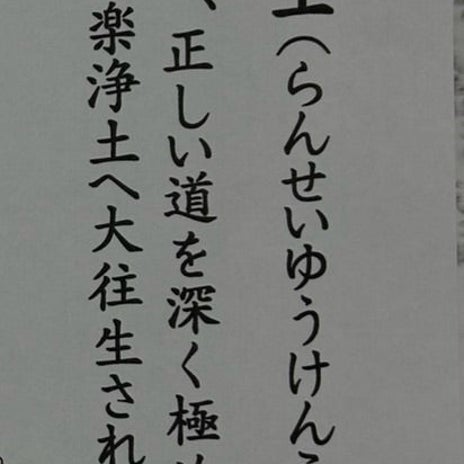 （らんせいゆうけん
、正しい道を深く極め
楽浄土へ大往生され